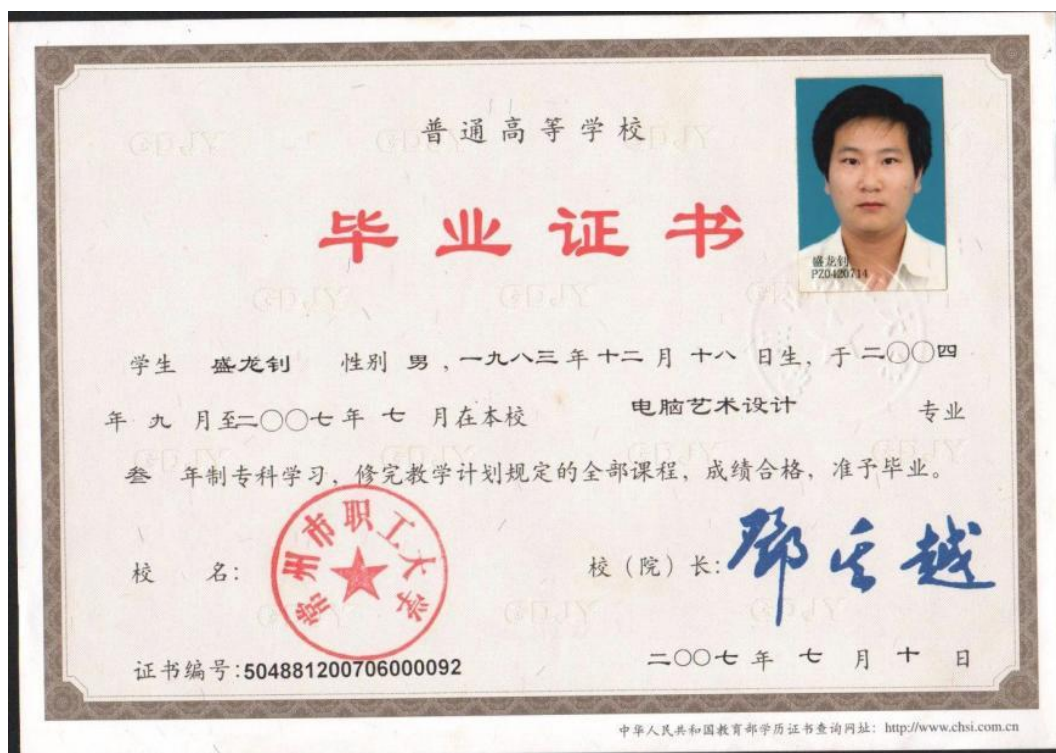 普通高等学校
毕业证书
盛龙钊
PZ0420714
学生 盛龙钊 性别 男，一九八三 年 十二 月 十八 日生，于 二〇〇四
年 九 月至二〇〇七 年 七 月在本校 电脑艺术设计 专业
叁 年制专科学习，修完教学计划规定的全部课程，成绩合格，准予毕业。
校 名：
常州市职工大学
校（院）长：
证书编号：504881200706000092
二〇〇七 年 七 月 十 日
中华人民共和国教育部学历证书查询网址：http://www.chsi.com.cn